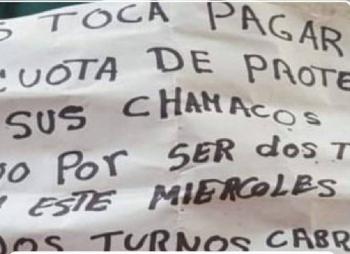 S TOCA PAGAR
CUOTA DE PROTE
SUS CHAMACOS
O POR SER dos T
ESTE MIERCOLES
OS TURNOS CABR